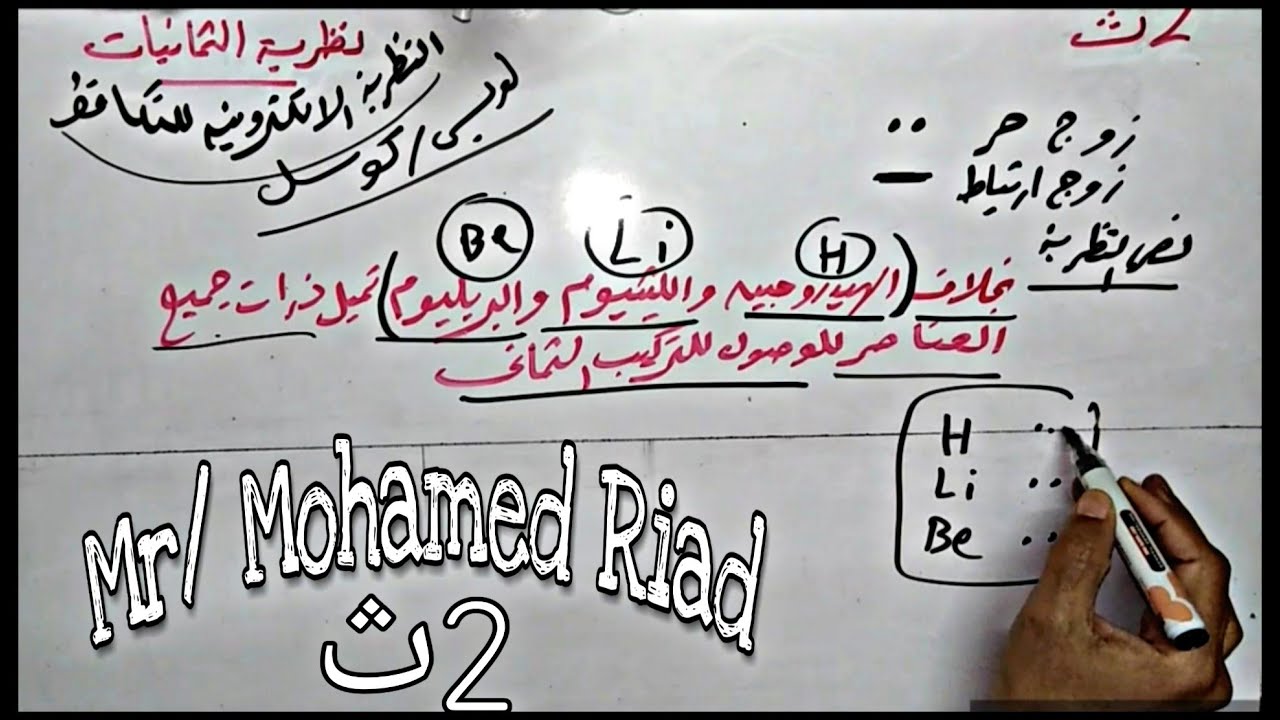 2ث
نظرية الثمانيات
النظرية الالكترونيه للتكافؤ
لويس / كوسل
زوج حر ••
زوج ارتباط —
نص النظرية
Be Li H
بخلاف (الهيدروجين والليثيوم والبريليوم) تميل ذرات جميع
العناصر للوصول للتركيب الثماني
H ••
Li ••
Be ••
Mr/ Mohamed Riad
2ث